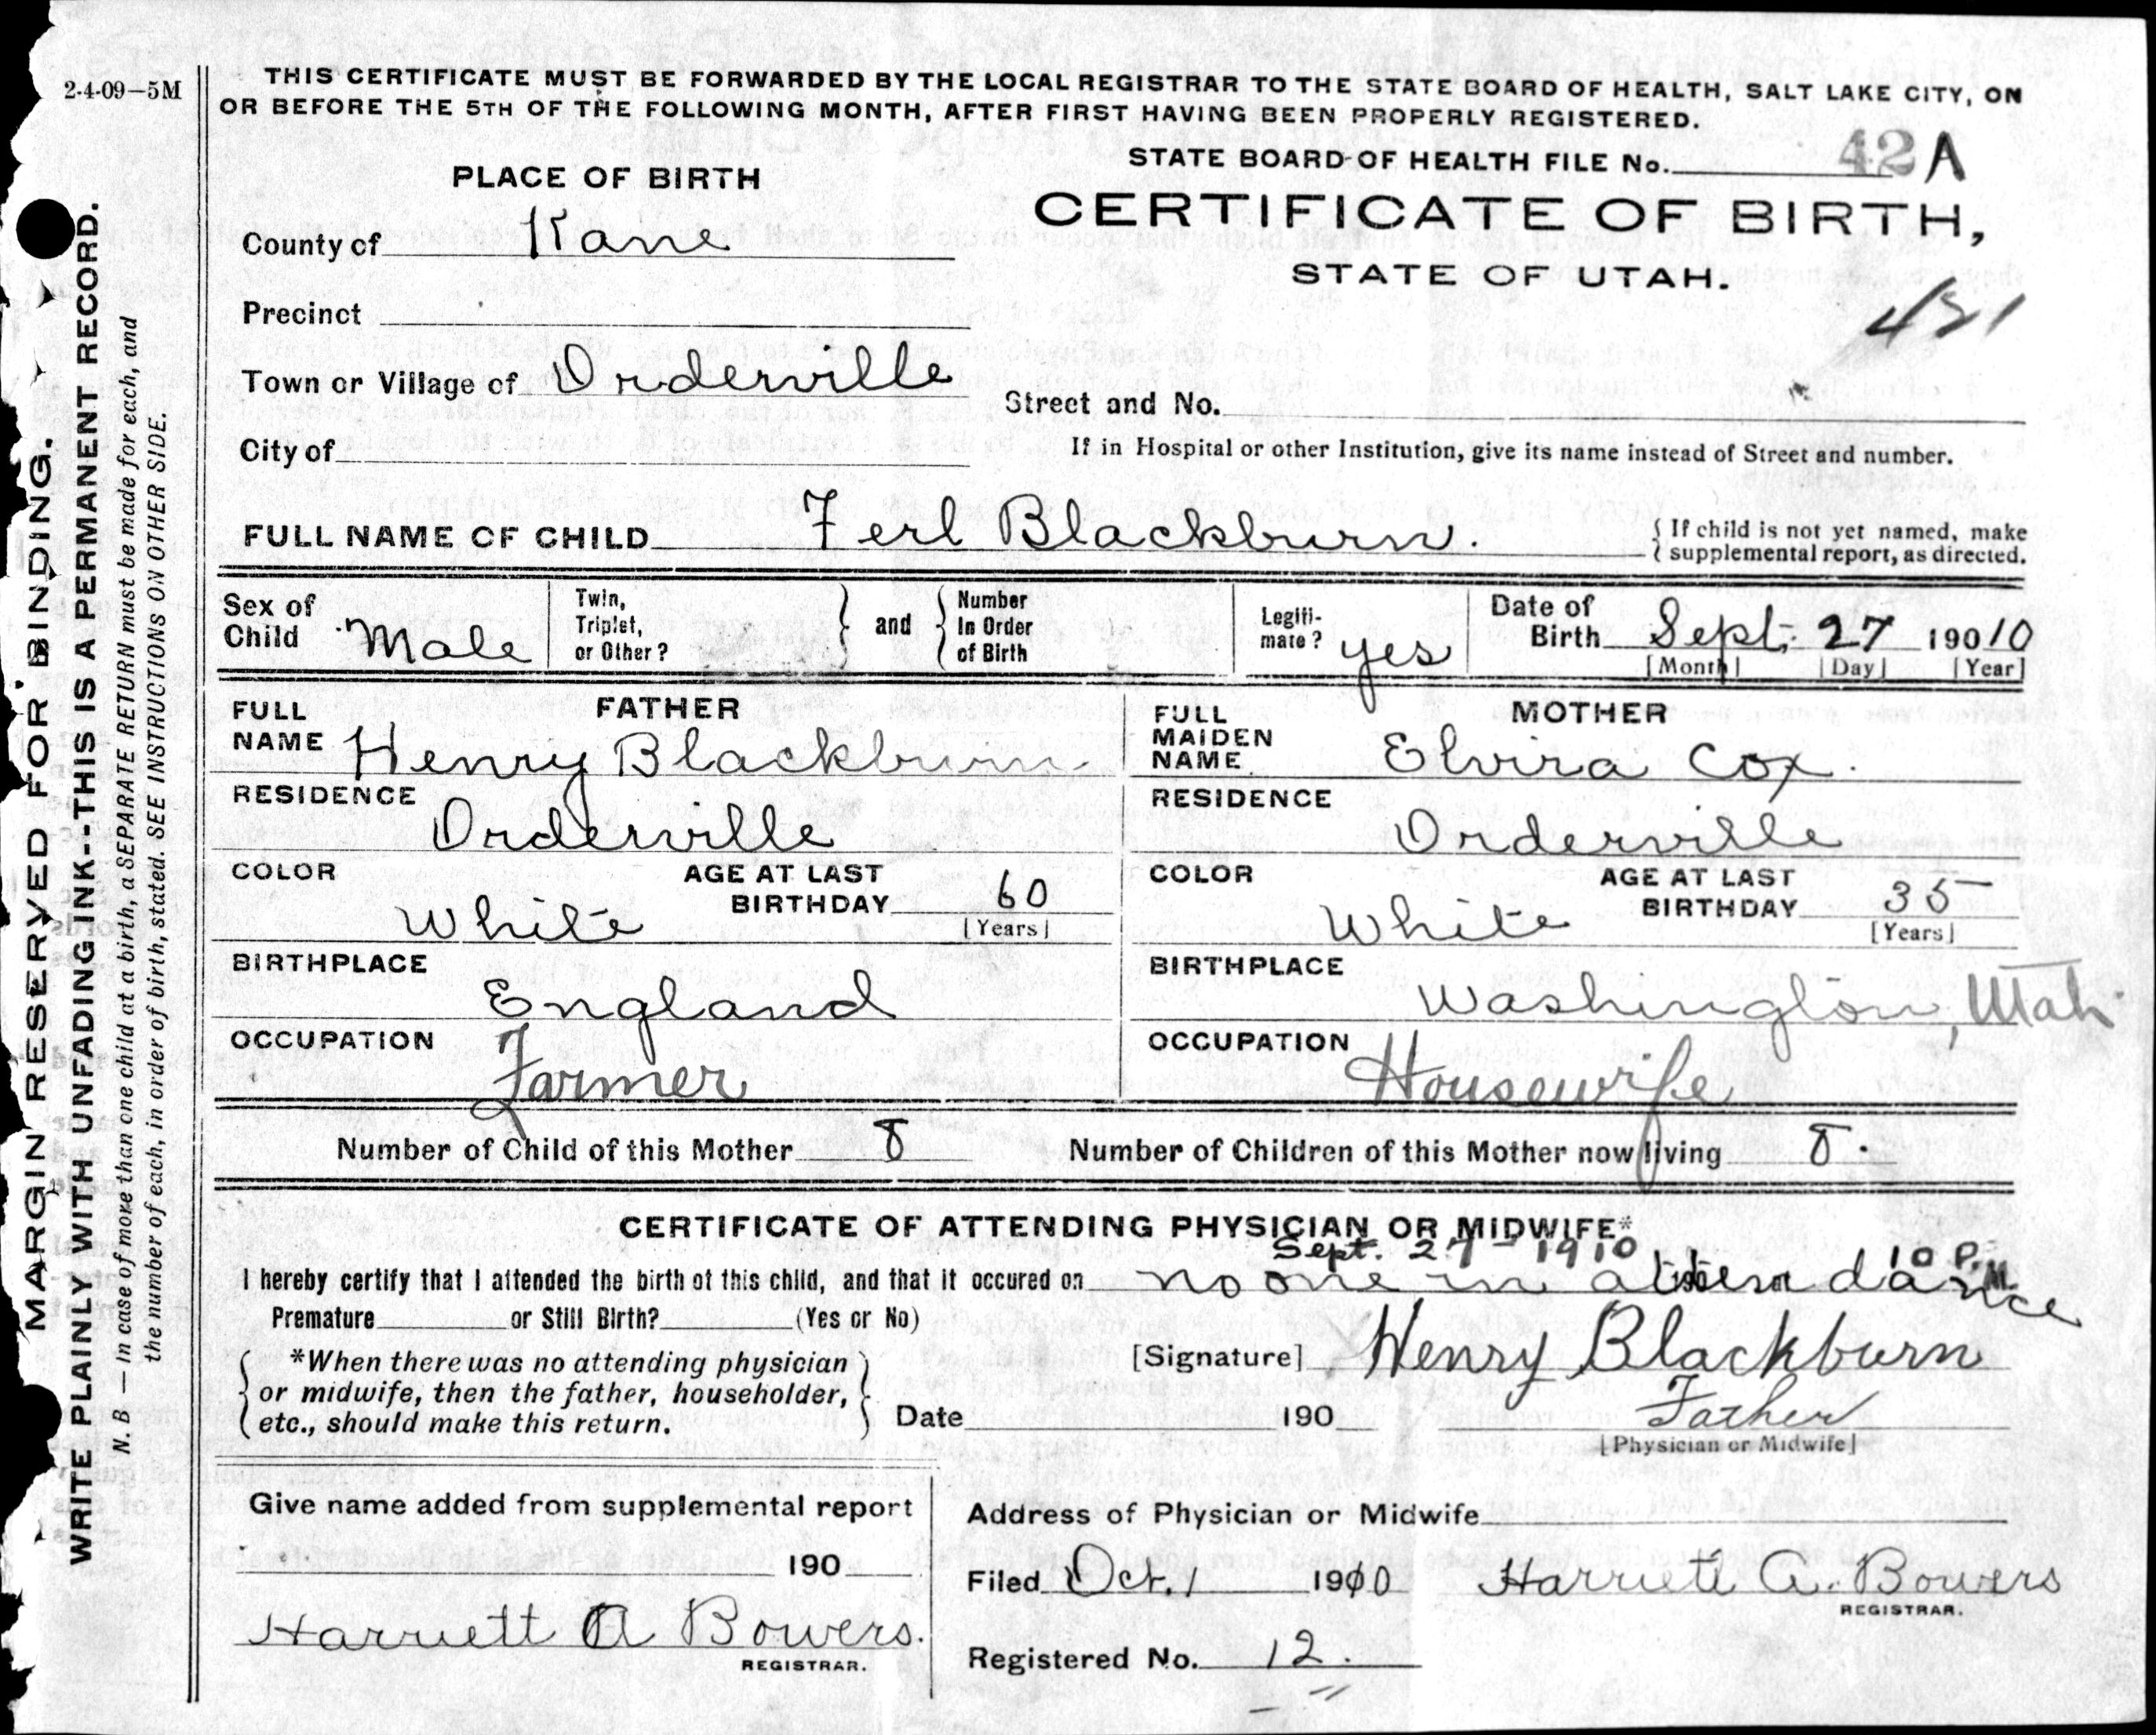 2-4-09—5M
THIS CERTIFICATE MUST BE FORWARDED BY THE LOCAL REGISTRAR TO THE STATE BOARD OF HEALTH, SALT LAKE CITY, ON
OR BEFORE THE 5TH OF THE FOLLOWING MONTH, AFTER FIRST HAVING BEEN PROPERLY REGISTERED.
STATE BOARD OF HEALTH FILE No. 42 A
PLACE OF BIRTH
CERTIFICATE OF BIRTH,
STATE OF UTAH.
County of Kane
Precinct
Town or Village of Orderville
Street and No.
City of
If in Hospital or other Institution, give its name instead of Street and number.
FULL NAME OF CHILD Ferl Blackburn.
{ If child is not yet named, make
supplemental report, as directed.
Sex of Child Male
Twin, Triplet, or Other? } and { Number In Order of Birth
Legiti-mate? yes
Date of Birth Sept. 27 190 10
[Month] [Day] [Year]
FATHER
FULL NAME Henry Blackburn
RESIDENCE
Orderville
COLOR White
AGE AT LAST BIRTHDAY 60
[Years]
BIRTHPLACE
England
OCCUPATION
Farmer
MOTHER
FULL MAIDEN NAME Elvira Cox.
RESIDENCE
Orderville
COLOR White
AGE AT LAST BIRTHDAY 35
[Years]
BIRTHPLACE
Washington, Utah
OCCUPATION
Housewife
Number of Child of this Mother 8
Number of Children of this Mother now living 8.
CERTIFICATE OF ATTENDING PHYSICIAN OR MIDWIFE*
Sept. 27-1910 10 P.M.
I hereby certify that I attended the birth of this child, and that it occured on no one in attendance
Premature or Still Birth? (Yes or No)
{ *When there was no attending physician
or midwife, then the father, householder,
etc., should make this return. }
[Signature] Henry Blackburn
Date 190
Father
[Physician or Midwife]
Give name added from supplemental report
190
Harriett A Bowers.
REGISTRAR.
Address of Physician or Midwife
Filed Oct. 1 1910 Harriett A. Bowers
REGISTRAR.
Registered No. 12.
MARGIN RESERVED FOR BINDING.
WRITE PLAINLY WITH UNFADING INK--THIS IS A PERMANENT RECORD.
N. B — In case of more than one child at a birth, a SEPARATE RETURN must be made for each, and
the number of each, in order of birth, stated. SEE INSTRUCTIONS ON OTHER SIDE.